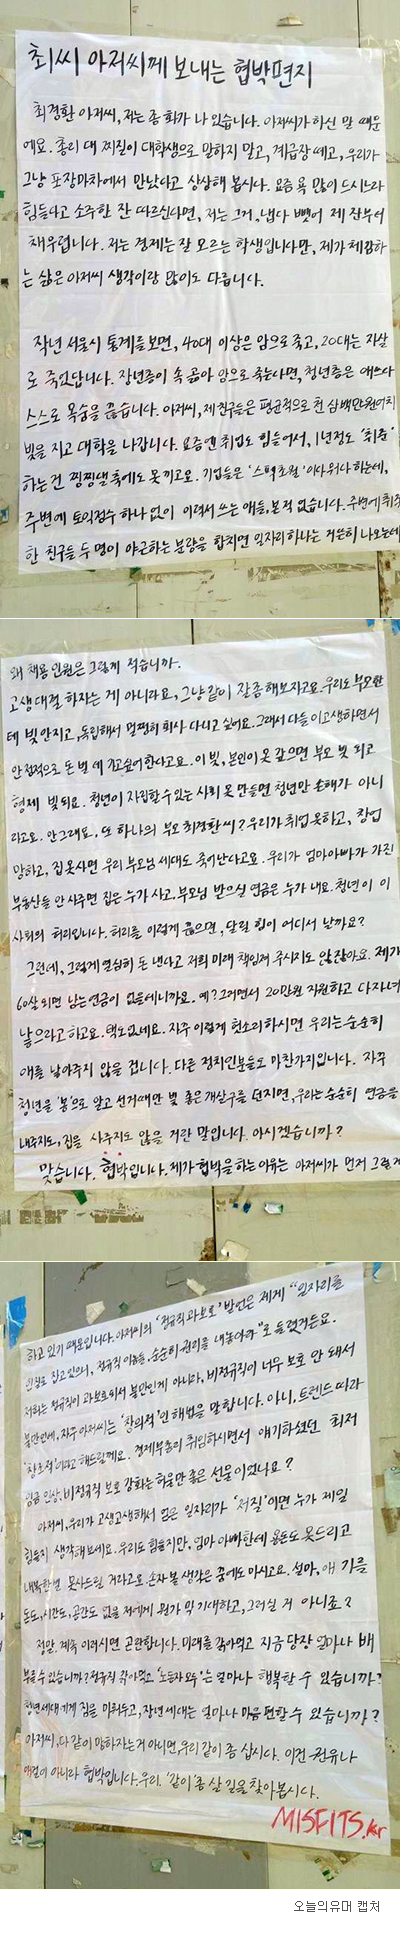 최씨 아저씨께 보내는 협박편지
최경환 아저씨, 저는 좀 화가 나 있습니다. 아저씨가 하신 말 때문
에요. 총리 대 찌질이 대학생으로 말하지 말고, 계급장 떼고, 우리가
그냥 포장마차에서 만났다고 상상해 봅시다. 요즘 욕 많이 드시느라
힘들다고 소주 한 잔 따르신다면, 저는 그거, 냅다 뺏어 제 잔부터
채우렵니다. 저는 경제는 잘 모르는 학생입니다만, 제가 체감하
는 삶은 아저씨 생각이랑 많이도 다릅니다.
작년 서울시 통계를 보면, 40대 이상은 암으로 죽고, 20대는 자살
로 죽었답니다. 장년층이 속 곪아 암으로 죽는다면, 청년층은
스스로 목숨을 끊습니다. 아저씨, 제 친구들은 평균적으로 천 삼백만원어치
빚을 지고 대학을 나갑니다. 요즘엔 취업도 힘들어서, 1년정도 '취준'
하는 건 찡찡댈 축에도 못 끼고요. 기업들은 '스펙초월' 이다 뭐다 하는데,
주변에 토익점수 하나 없이 이력서 쓰는 애들, 본 적 없습니다. 주변에 취직
한 친구들 두 명이 야근하는 분량을 합치면 일자리 하나는 거뜬히 나오는데
왜 채용 인원은 그렇게 적습니까.
고생 대결 하자는 게 아니라요, 그냥 같이 잘 좀 해보자고요. 우리도 부모한
테 빚 안 지고, 독립해서 멀쩡히 회사 다니고 싶어요. 그래서 다들 이 고생하면서
안정적으로 돈 벌 데 가고 싶어한다고요. 이 빚, 본인이 못 갚으면 부모 빚 되고
형제 빚 되요. 청년이 자립할 수 있는 사회 못 만들면 청년만 손해가 아니
라고요. 안 그래요, 또 하나의 부모 최경환 씨? 우리가 취업 못하고, 창업
망하고, 집 못 사면 우리 부모님 세대도 죽어난다고요. 우리가 엄마아빠가 가진
부동산들 안 사주면 집은 누가 사고, 부모님 받으실 연금은 누가 내요. 청년이 이
사회의 허리입니다. 허리를 이렇게 끊으면, 달릴 힘이 어디서 난까요?
그런데, 그렇게 열심히 돈 낸다고 저희 미래 책임져 주시지도 않잖아요. 제가
60살 되면 남는 연금이 없을테니까요. 예? 그러면서 20만원 지원하고 다자녀
낳으라고 하고요. 택도 없네요. 자꾸 이렇게 헛소리하시면 우리는 순순히
애를 낳아주지 않을 겁니다. 다른 정치인분들도 마찬가지입니다. 자꾸
청년을 '봉'으로 알고 선거때만 빛 좋은 개살구를 던지면, 우리는 순순히 연금을
내주지도, 집을 사주지도 않을 거란 말입니다. 아시겠습니까?
맞습니다. 협박입니다. 제가 협박을 하는 이유는 아저씨가 먼저 그렇게
하고 있기 때문입니다. 아저씨의 '정규직 과보호' 발언은 제게 "일자리를
인질로 잡고 있으니, 정규직 이놈들, 순순히 권리를 내놓아라"로 들렸거든요.
저희는 정규직이 과보호되서 불만인게 아니라, 비정규직이 너무 보호 안 돼서
불만인데, 자꾸 아저씨는 '창의적'인 해법을 말합니다. 아니, 트렌드 따라
'창조적'이라고 해드릴게요. 경제부총리 취임하시면서 얘기하셨던 최저
임금 인상, 비정규직 보호 강화는 허울만 좋은 선물이었나요?
아저씨, 우리가 고생고생해서 얻은 일자리가 '저질'이면 누가 제일
힘들지 생각해보세요. 우리도 힘들지만, 엄마 아빠한테 용돈도 못드리고
내복 한벌 못사드릴 거라고요. 손자 볼 생각은 꿈에도 마시고요. 설마, 애 기를
돈도, 시간도, 공간도 없을 저에게 뭔가 막 기대하고, 그러실 거 아니죠?
정말, 계속 이러시면 곤란합니다. 미래를 갉아먹고 지금 당장 얼마나 배
부를 수 있습니까? 정규직 갉아먹고 '노동자 모두'는 얼마나 행복할 수 있습니까?
청년세대에게 짐을 미뤄두고, 장년세대는 얼마나 마음 편할 수 있습니까?
아저씨, 다 같이 망하자는 거 아니면, 우리 같이 좀 삽시다. 이건 권유나
애걸이 아니라 협박입니다. 우리, '같이' 좀 살 길을 찾아봅시다.
MISFITS.kr
오늘의유머 캡처